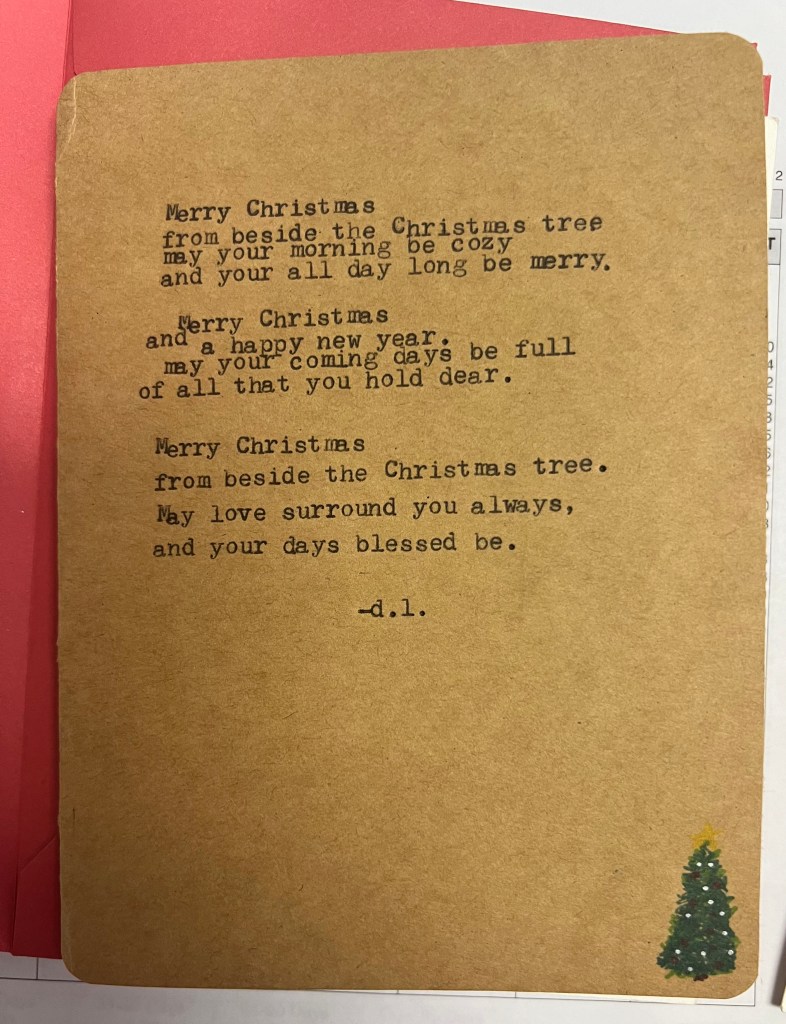 Merry Christmas
from beside the Christmas tree
may your morning be cozy
and your all day long be merry.
Merry Christmas
and a happy new year.
may your coming days be full
of all that you hold dear.
Merry Christmas
from beside the Christmas tree.
May love surround you always,
and your days blessed be.
-d.l.
2
T
0
4
2
5